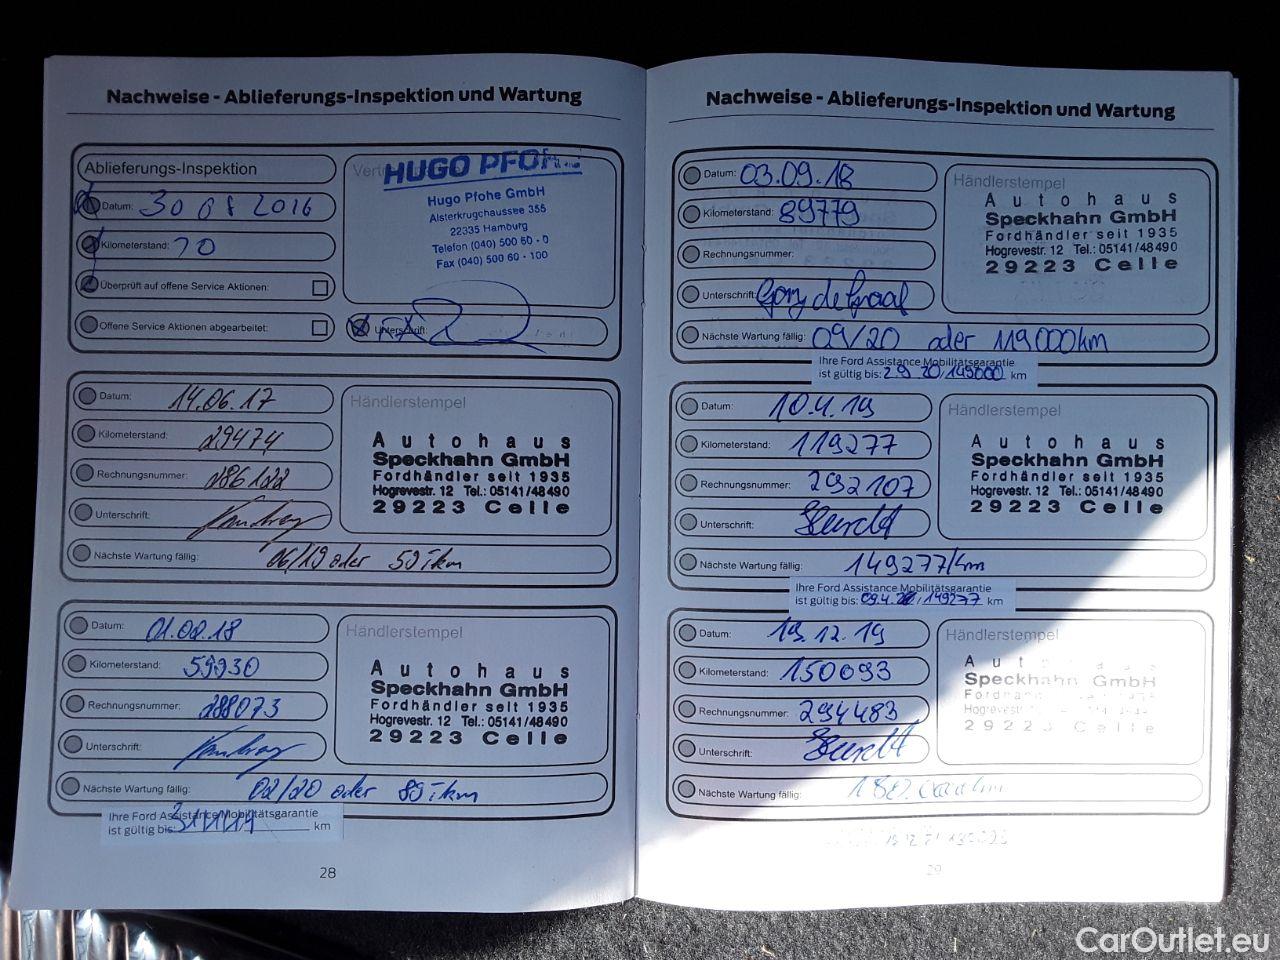 Nachweise - Ablieferungs-Inspektion und Wartung
Ablieferungs-Inspektion
Datum: 30 08 2016
Kilometerstand: 10
Überprüft auf offene Service Aktionen:
Offene Service Aktionen abgearbeitet:
HUGO PFOHE
Hugo Pfohe GmbH
Alsterkrugchaussee 355
22335 Hamburg
Telefon (040) 500 60 - 0
Fax (040) 500 60 - 100
Unterschrift:
Datum: 14.06.17
Kilometerstand: 29474
Rechnungsnummer: 286122
Unterschrift:
Nächste Wartung fällig: 06/19 oder 59 tkm
Händlerstempel
Autohaus
Speckhahn GmbH
Fordhändler seit 1935
Hogrevestr. 12 Tel.: 05141/48490
29223 Celle
Datum: 01.02.18
Kilometerstand: 59930
Rechnungsnummer: 288073
Unterschrift:
Nächste Wartung fällig: 02/20 oder 89 tkm
Händlerstempel
Autohaus
Speckhahn GmbH
Fordhändler seit 1935
Hogrevestr. 12 Tel.: 05141/48490
29223 Celle
Ihre Ford Assistance Mobilitätsgarantie
ist gültig bis: km
28
Nachweise - Ablieferungs-Inspektion und Wartung
Datum: 03.09.18
Kilometerstand: 89779
Rechnungsnummer:
Unterschrift:
Nächste Wartung fällig: 09/20 oder 119000km
Händlerstempel
Autohaus
Speckhahn GmbH
Fordhändler seit 1935
Hogrevestr. 12 Tel.: 05141/48490
29223 Celle
Ihre Ford Assistance Mobilitätsgarantie
ist gültig bis: 2.9.20, km
Datum: 10.4.19
Kilometerstand: 119277
Rechnungsnummer: 292107
Unterschrift:
Nächste Wartung fällig: 149277/km
Händlerstempel
Autohaus
Speckhahn GmbH
Fordhändler seit 1935
Hogrevestr. 12 Tel.: 05141/48490
29223 Celle
Ihre Ford Assistance Mobilitätsgarantie
ist gültig bis: 149277 km
Datum: 19.12.19
Kilometerstand: 150093
Rechnungsnummer: 294483
Unterschrift:
Nächste Wartung fällig:
Händlerstempel
Autohaus
Speckhahn GmbH
Fordhändler
Hogrevestr.
29223 Celle
29
CarOutlet.eu